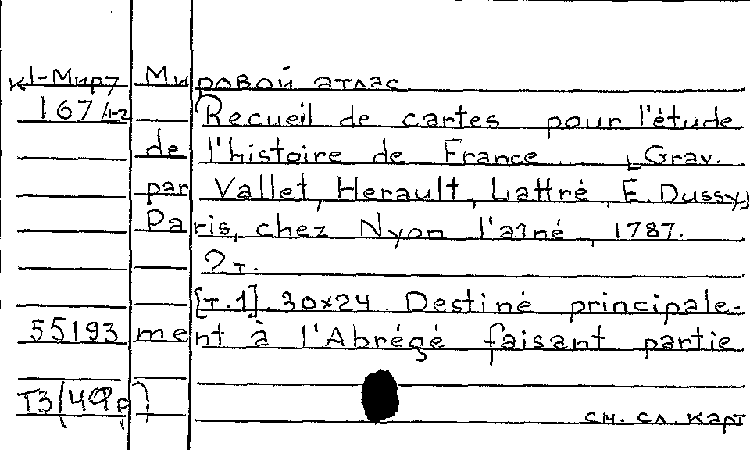 К1-Мир7 Мировой атлас
167/1-2 Recueil de cartes pour l'étude
de l'histoire de France [Grav.
par Vallet, Herault, Lattré, E. Dussy]
Paris, chez Nyon l'aîné, 1787.
2 т.
[т.1] 30x24 Destiné principale=
55193 ment à l'Abrégé faisant partie
Т3(49р)
см. сл. карт